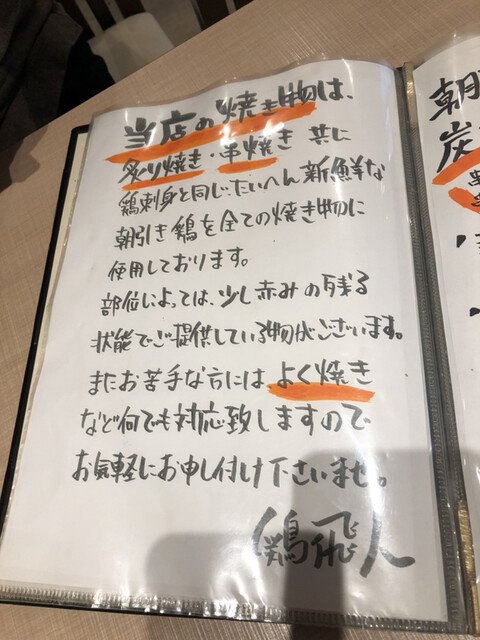 当店の焼き物は、
炙り焼き・串焼き 共に
鶏刺身と同じたいへん新鮮な
朝引き鶏を全ての焼き物に
使用しております。
部位によっては、少し赤みの残る
状態でご提供している物がございます。
またお苦手な方には よく焼き
など何でも対応致しますので
お気軽にお申し付け下さいませ。
鶏飛人
朝
炭